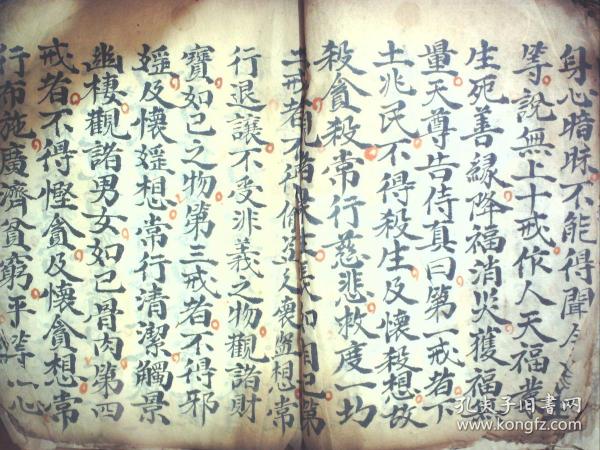 身心暗昧不能得聞
等說無上十戒作人天福
生死善緣降福消災獲福
量天尊告侍真曰第一戒者下
土兆民不得殺生及懷殺想故
殺貪殺常行慈悲救度一切
二戒者不得偷盜及懷盜想常
行退讓不受非義之物觀諸財
寶如己之物第三戒者不得邪
婬及懷婬想常行清潔觸景
幽棲觀諸男女如己骨肉第四
戒者不得慳貪及懷貪想常
行布施廣濟貧窮平等心
孔夫子旧书网
www.kongfz.com